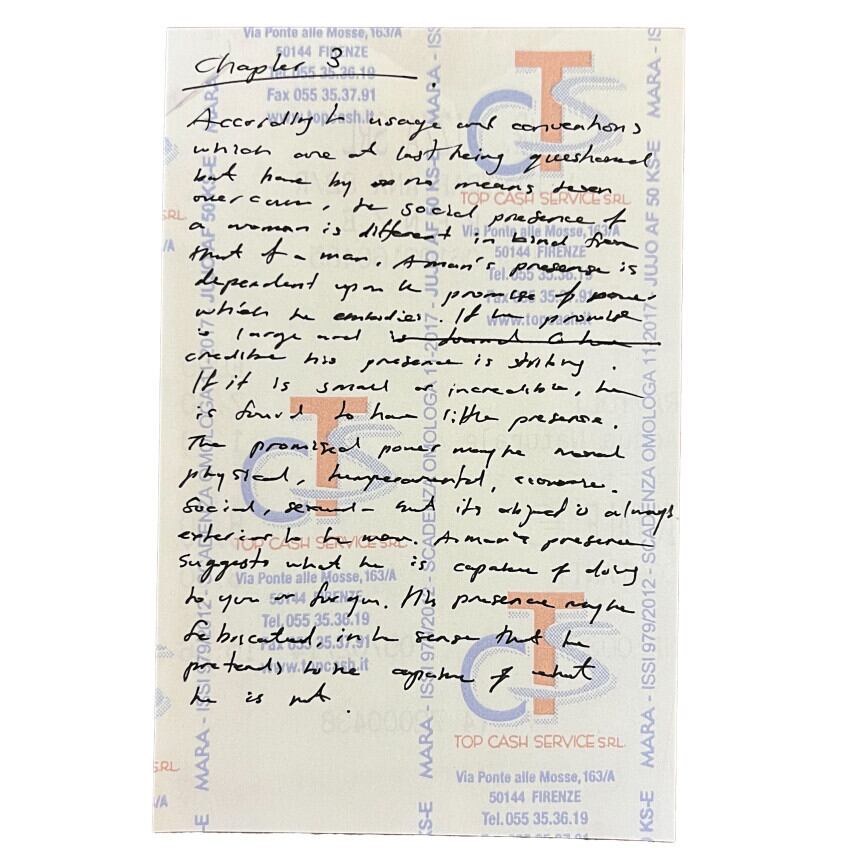 Via Ponte alle Mosse, 163/A
50144 FIRENZE
Tel. 055 35.36.19
Fax 055 35.37.91
www.topcash.it
Chapter 3
According to usage and conventions
which are at last being questioned
but have by no means been
overcome, the social presence of
a woman is different in kind from
that of a man. A man's presense is
dependent upon the promise of power
which he embodies. If the promise
is large and
credible his presence is striking.
If it is small or incredible, he
is found to have little presense.
The promised power may be moral
physical, temperamental, economic,
social, sexual - but its object is always
exterior to the man. A man's presence
suggests what he is capable of doing
to you or for you. His presence may be
fabricated, in the sense that he
pretends to be capable of what
he is not.
CTS
TOP CASH SERVICE SRL
Via Ponte alle Mosse, 163/A
50144 FIRENZE
Tel. 055 35.36.19
Fax 055 35.37.91
www.topcash.it
CTS
TOP CASH SERVICE SRL
Via Ponte alle Mosse, 163/A
50144 FIRENZE
Tel. 055 35.36.19
Fax 055 35.37.91
www.topcash.it
CTS
TOP CASH SERVICE SRL.
Via Ponte alle Mosse, 163/A
50144 FIRENZE
Tel. 055 35.36.19
SRL
/A
SRL
/A
MARA - ISSI 979/2012 - SCADENZA OMOLOGA 11-2017 - JUJO AF 50 KS-E MARA
KS-E MARA - ISSI 979/2012 - SCADENZA OMOLOGA 11-2017 - JUJO AF 50 KS-E MARA - ISS
KS-E MARA - ISSI 979/2012 - SCADENZA OMOLOGA 11 2017 JUJO AF 50 KS-E MARA - IS